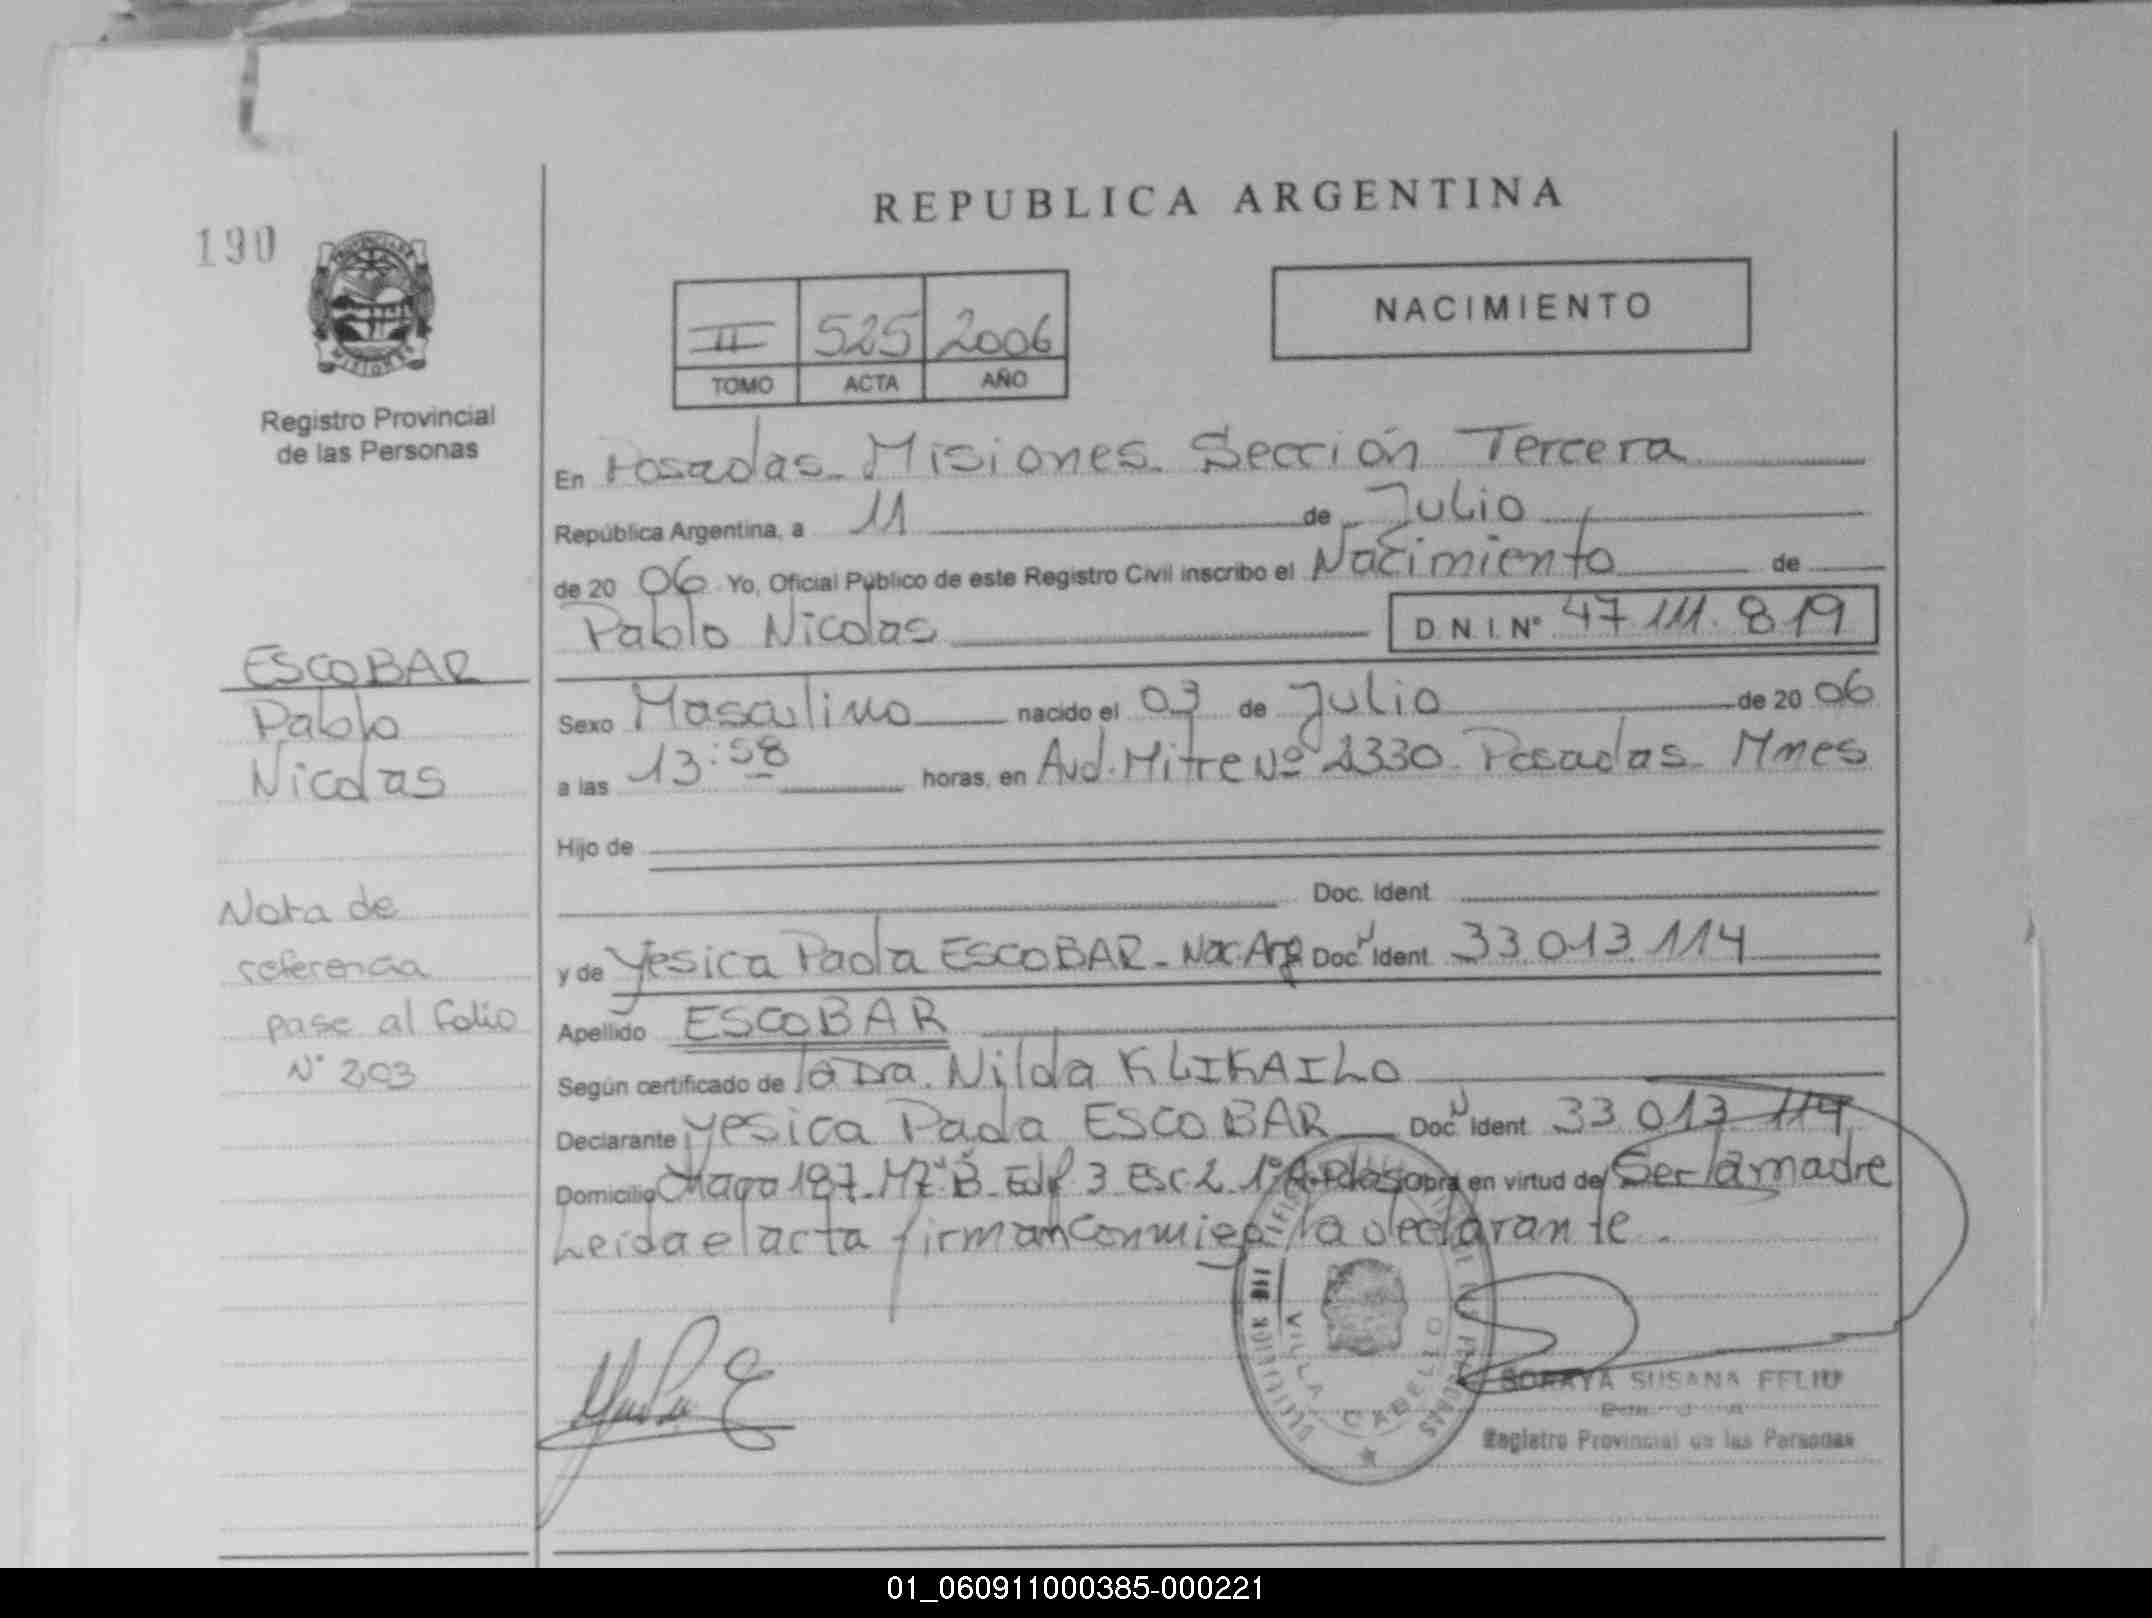 REPUBLICA ARGENTINA
190
NACIMIENTO
II 525 2006
TOMO ACTA AÑO
Registro Provincial
de las Personas
En Posadas - Misiones - Sección Tercera
República Argentina, a 11 de Julio
de 20 06 Yo, Oficial Público de este Registro Civil inscribo el Nacimiento de
Pablo Nicolas D.N.I. Nº 47 111. 819
ESCOBAR
Pablo
Nicolas
Sexo Masculino nacido el 03 de Julio de 20 06
a las 13:58 horas, en Avd. Mitre Nº 2330 - Posadas - Mnes
Hijo de
Doc. Ident
Nota de
referencia
pase al folio
N° 203
y de Yesica Paola ESCOBAR - Nac. Arg Doc N Ident 33 013 114
Apellido ESCOBAR
Según certificado de la Dra. Nilda KLIKAILO
Declarante Yesica Paola ESCOBAR Doc N Ident 33 013 114
Domicilio 187 - Mz B - Edf 3 Esc 2 1° obra en virtud de Ser la madre
Leida el acta firman conmigo la declarante.
VILLA CABELLO
SORAYA SUSANA FELIU
Registro Provincial de las Personas
01_060911000385-000221